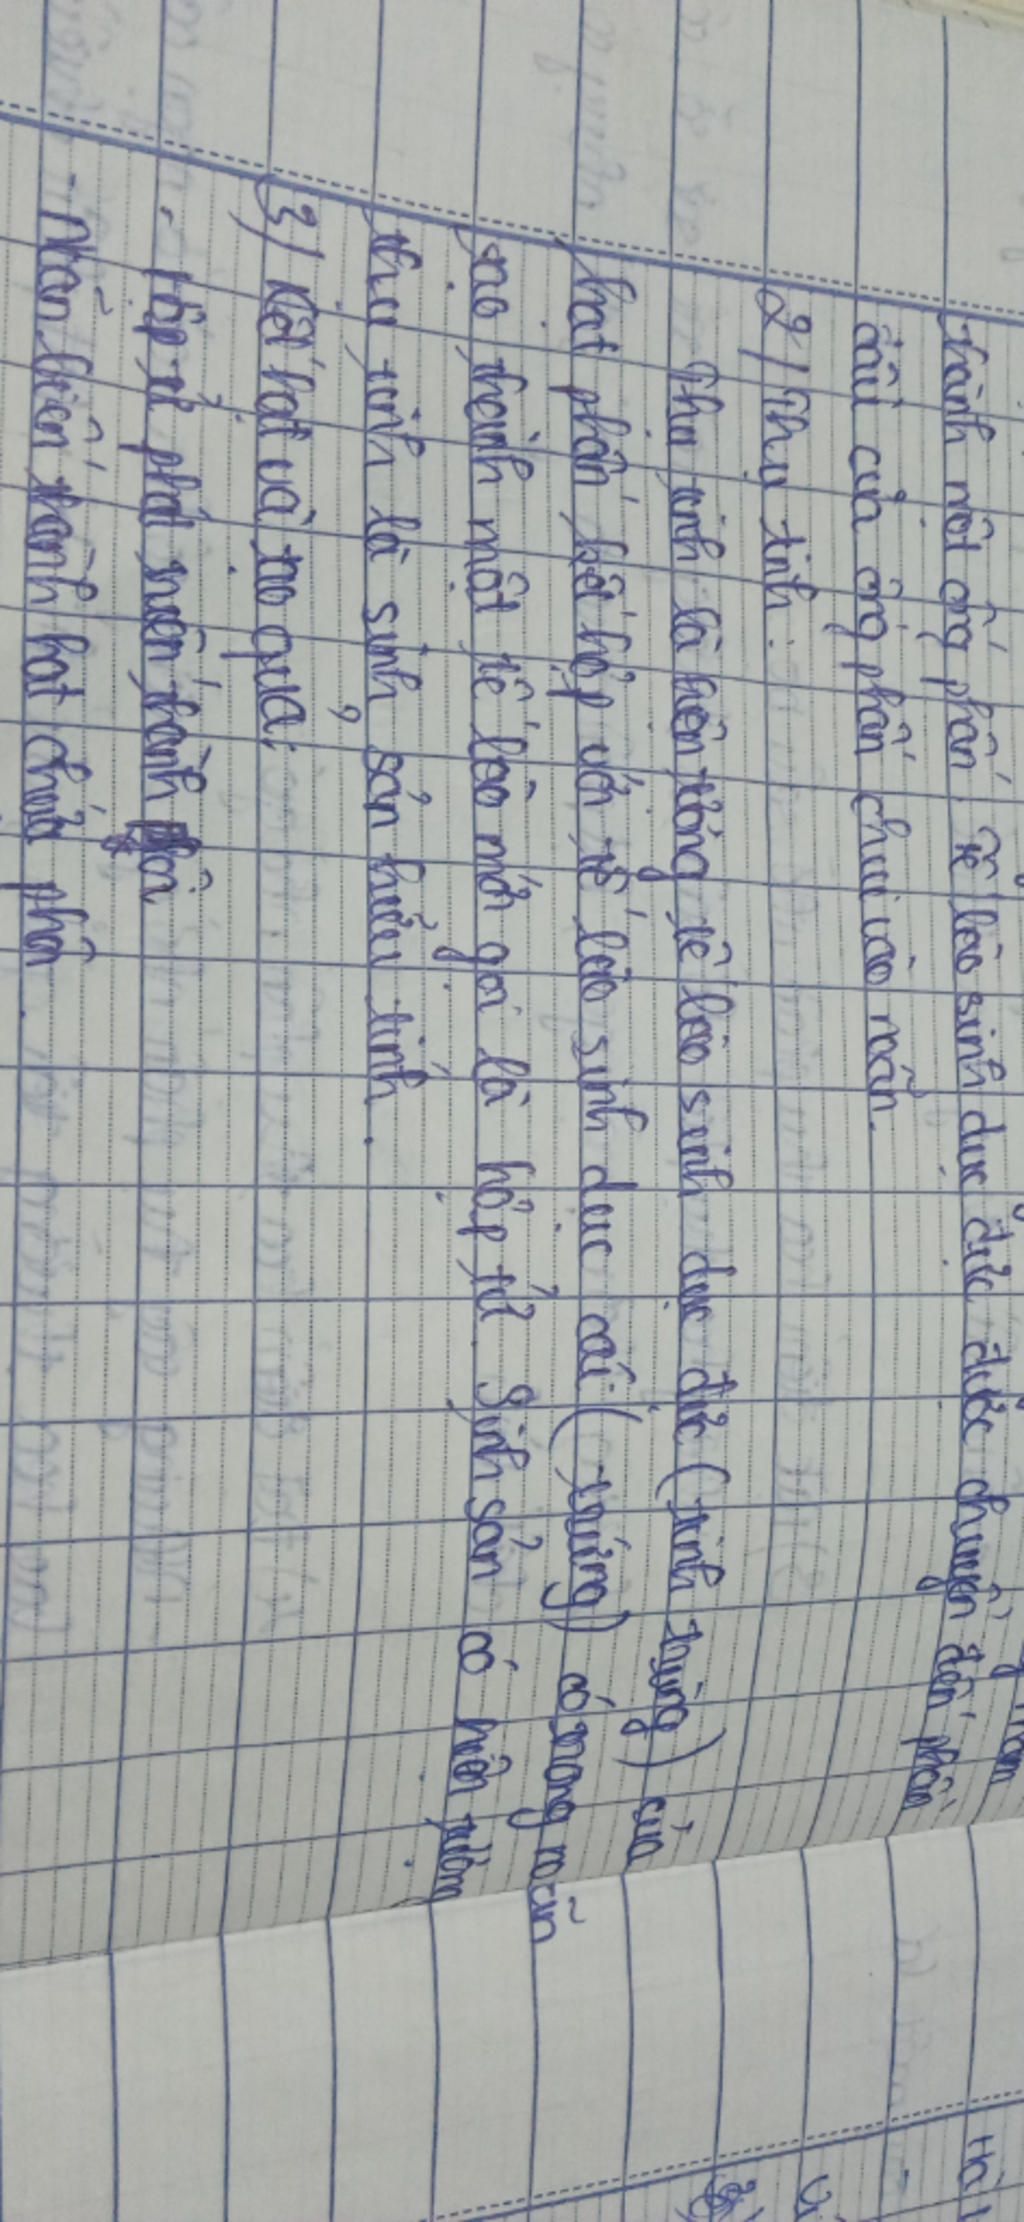 thành một ống phấn. Tế bào sinh dục đực được chuyển đến phần
đầu của ống phấn chui vào noãn.
2/ Thụ tinh:
Thụ tinh là hiện tượng tế bào sinh dục đực (tinh trùng) của
hạt phấn kết hợp với tế bào sinh dục cái (trứng) có trong noãn
tạo thành một tế bào mới gọi là hợp tử. Sinh sản có hiện tượng
thụ tinh là sinh sản hữu tính.
3/ Kết hạt và tạo quả:
- Hợp tử phát triển thành phôi
- Noãn biến thành hạt chứa phôi